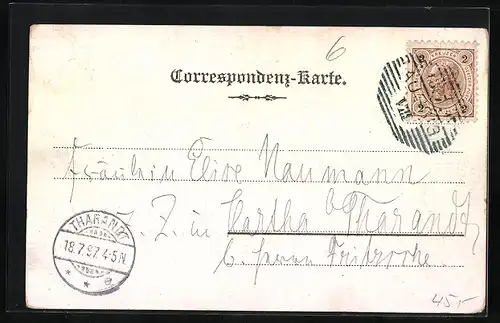 6
Correspondenz-Karte.
2 2
Fräulein Elise Naumann
z. Z. in Hartha b Tharandt
b. Herrn Fritzsche.
THARANDT
18.7.97.4-5N
* * e
45,-